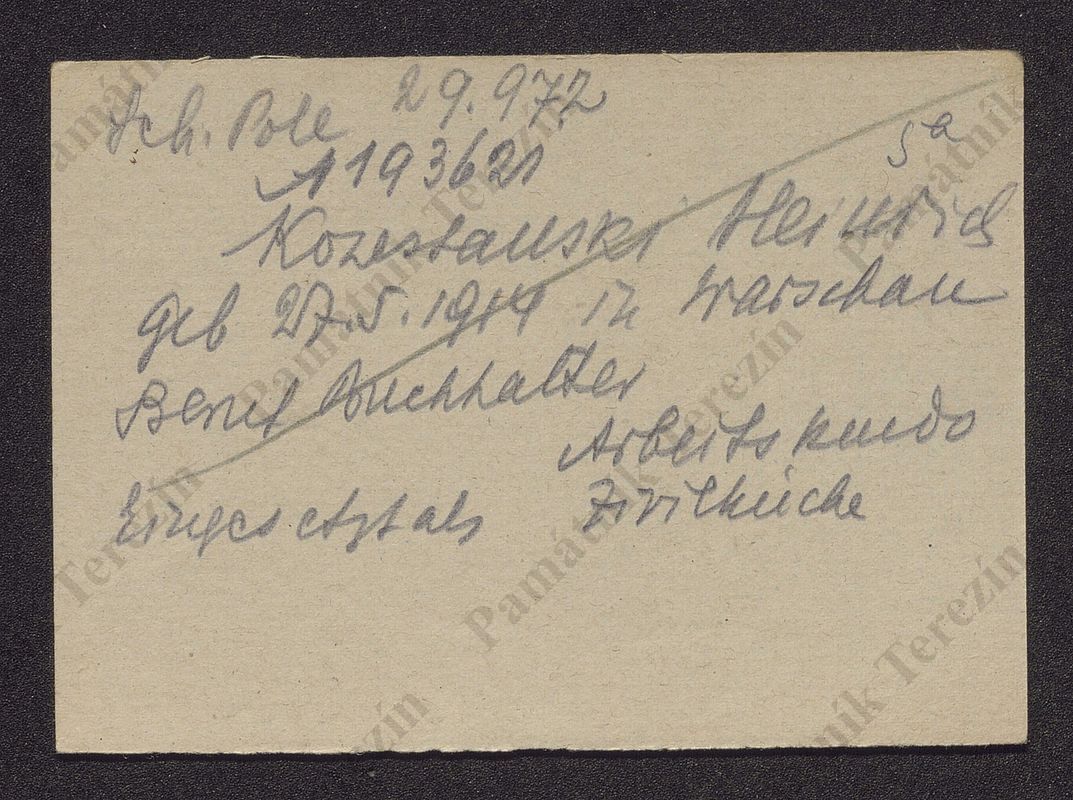 Sch. Pole 29.972
193621
5a
Kozestanski Heinrich
geb 27.5.1914 in Warschau
Beruf Buchhalter
Arbeitskmdo
Eingesetzt als Zivilküche
Památník Terezín